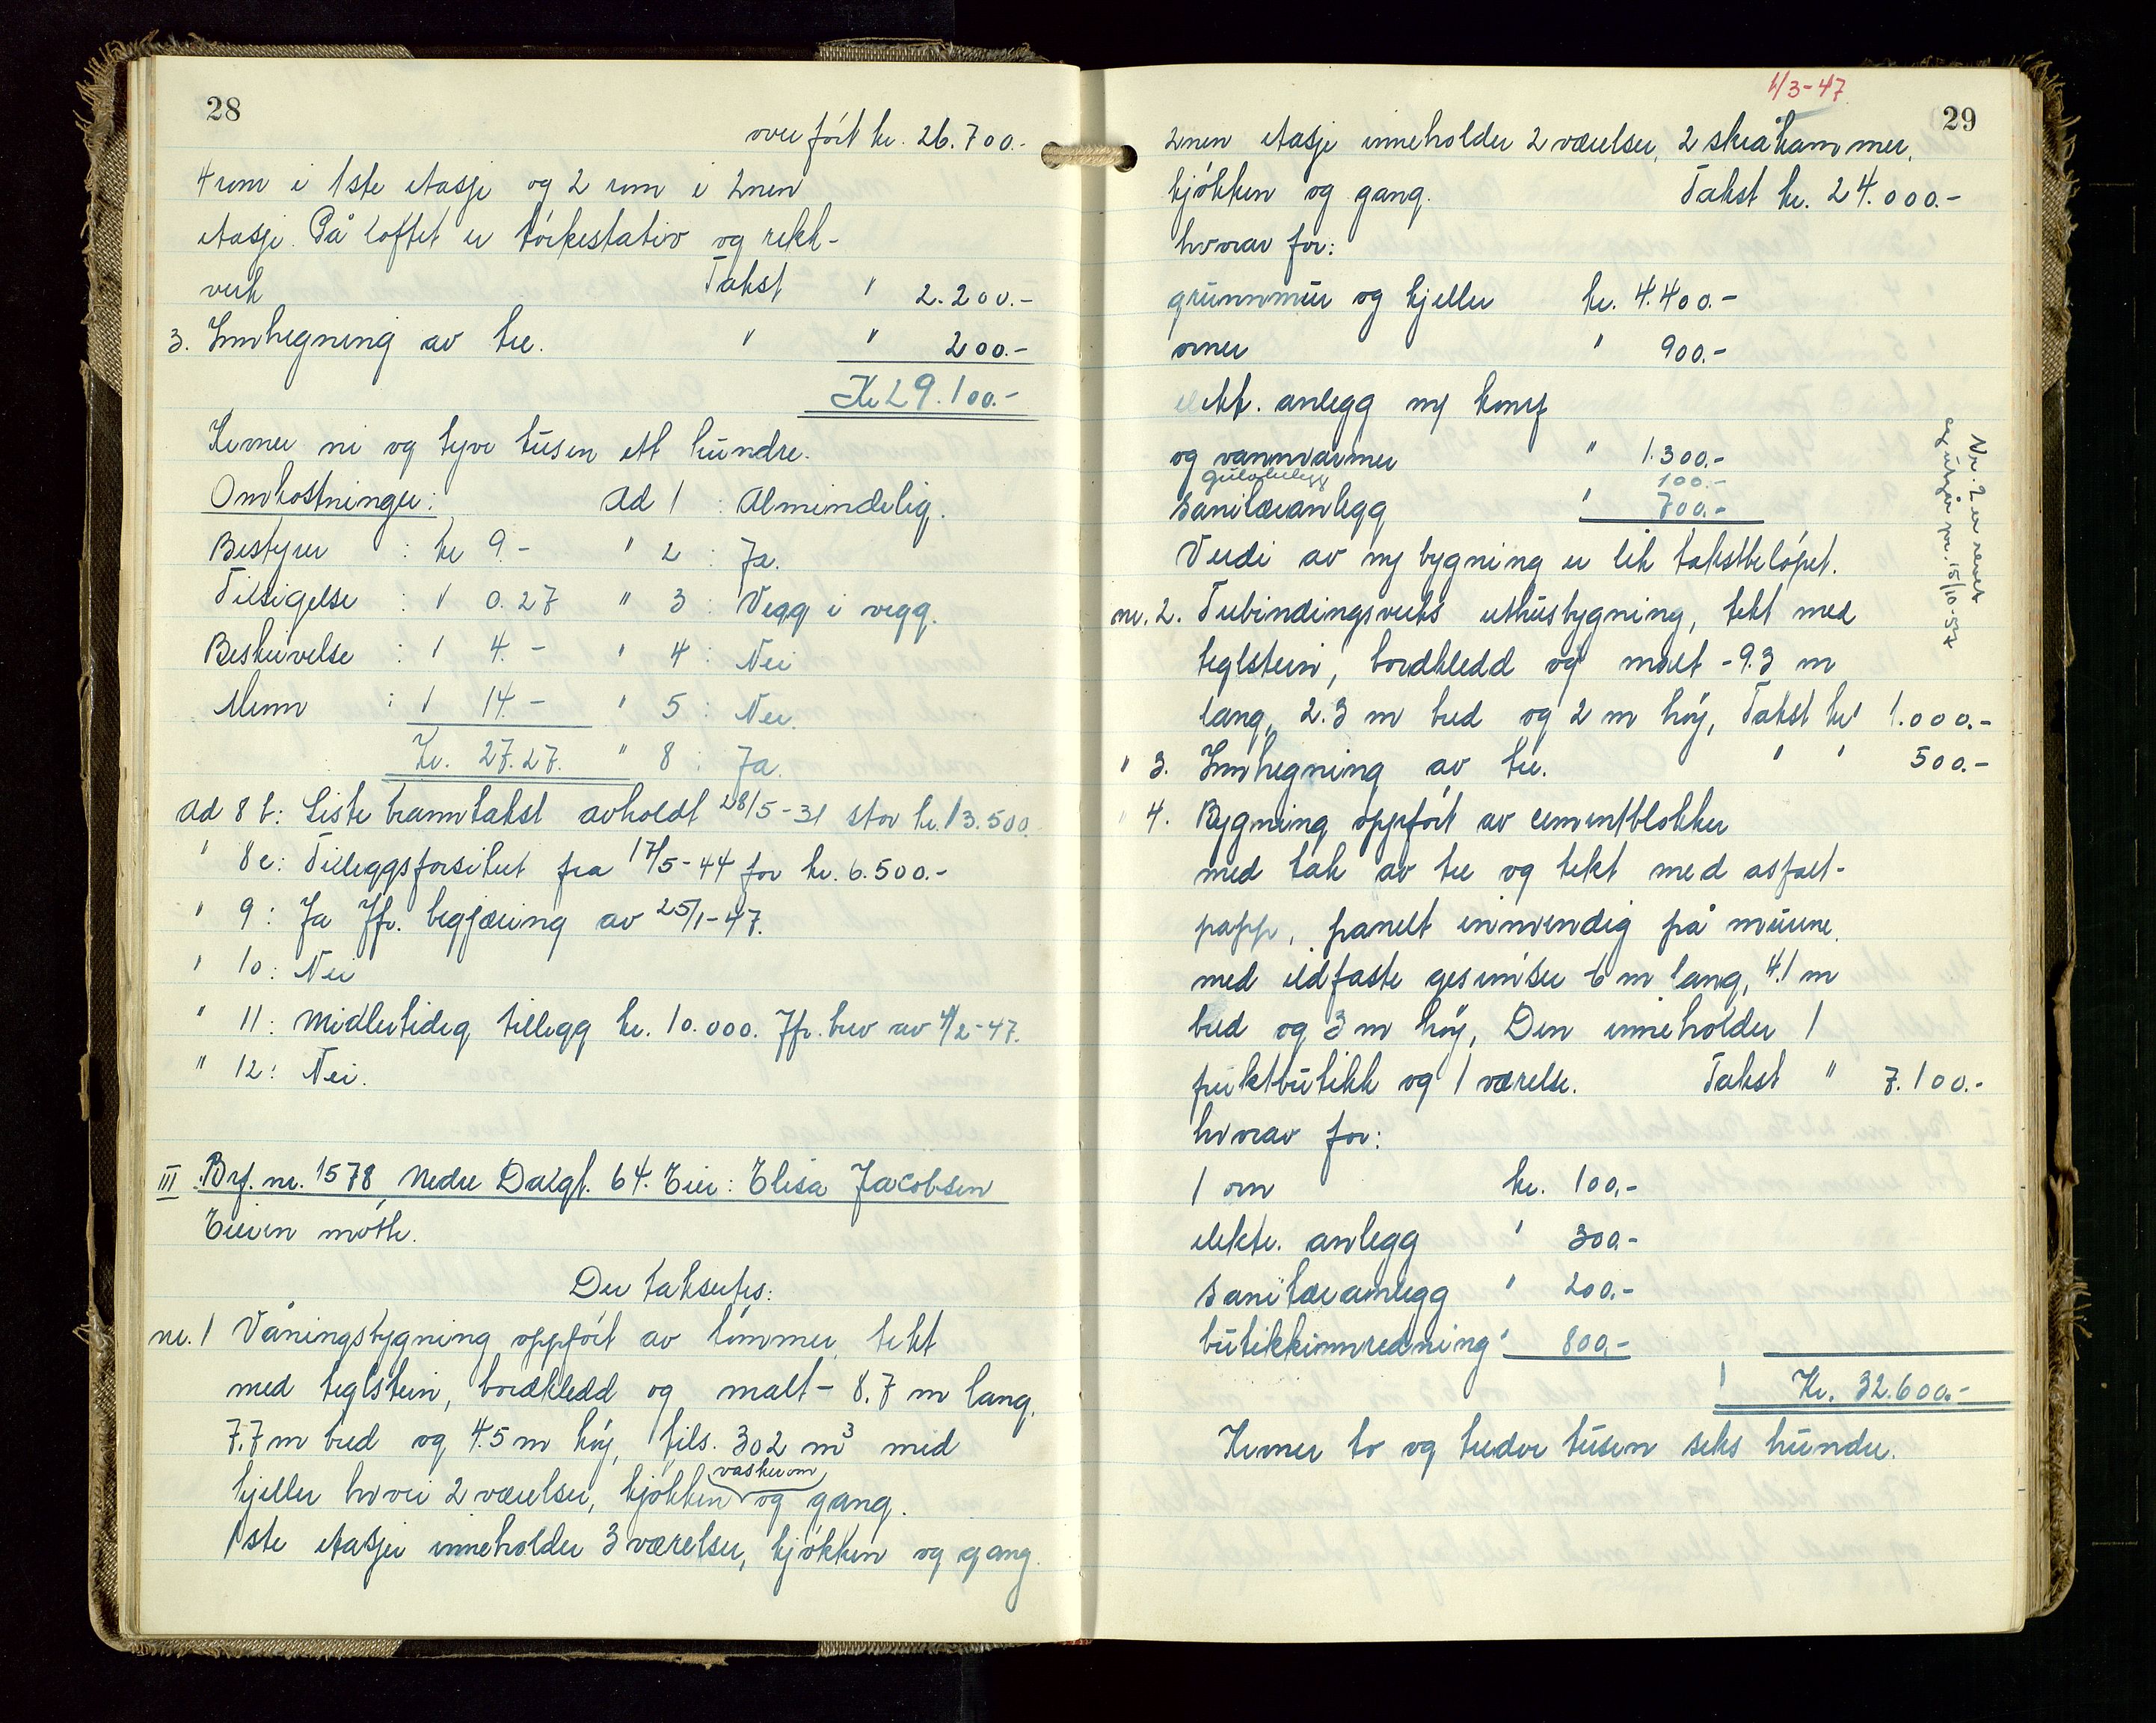 28
overført kr. 26.700.-
4 rom i 1ste etasje og 2 rom i 2nen
etasje. På loftet er tørkestativ og rekk-
verk Takst " 2.200.-
3. Innhegning av tre. " " 200.-
Kr 29.100.-
Kroner ni og tyve tusen ett hundre.
Omkostninger: Ad 1 : Almindelig.
Bestyrer : kr 9.- " 2 : Ja.
Tilsigelse : " 0.27 " 3 : Vegg i vegg.
Beskrivelse : " 4.- " 4 : Nei
Menn : " 14.- " 5 : Nei.
Kr. 27.27. " 8 : Ja.
Ad 8 b: Siste branntakst avholdt 28/5-31 stor kr. 13.500.
" 8c: Tilleggsforsikret fra 17/5-44 for kr. 6.500.-
" 9: Ja Jfr. begjæring av 25/1-47.
" 10: Nei
" 11: Midlertidig tillegg kr. 10.000. Jfr. brev av 4/2-47.
" 12: Nei.
III Brf. nr. 1578, Nedre Dalgt. 64. Eier: Elisa Jacobsen
Eieren møtte.
Der taksertes:
nr. 1 Våningsbygning oppført av tømmer, tekt
med teglstein, bordkledd og malt - 8.7 m lang,
7.7 m bred og 4.5 m høy, tils. 302 m3 med
kjeller hvori 2 værelser, kjøkken vaskerom og gang.
1ste etasjer inneholder 3 værelser, kjøkken og gang.
1/3-47
29
2nen etasje inneholder 2 værelser, 2 skråkammer,
kjøkken og gang. Takst kr. 24.000.-
hvorav for:
grunnmur og kjeller kr. 4.400.-
ovner " 900.-
elektr. anlegg m/ komf
og vannvarmer " 1.300.-
gulvbelegg 100.-
sanitæranlegg " 700.-
Verdi av ny bygning er lik takstbeløpet.
nr. 2. Trebindingsverks uthusbygning, tekt med
teglstein, bordkledd og malt - 9.3 m
lang, 2.3 m bred og 2 m høy, Takst kr 1.000.-
" 3. Innhegning av tre. " " 500.-
" 4. Bygning oppført av cementblokker
med tak av tre og tekt med asfalt-
papp, panelt innvendig på murene
med ildfaste gesimser 6 m lang, 4.1 m
bred og 3 m høy, Den inneholder 1
fruktbutikk og 1 værelse. Takst " 7.100.-
hvorav for:
1 ovn kr. 100.-
elektr. anlegg " 300.-
sanitæranlegg " 200.-
butikkinnredning " 800.-
Kr. 32.600.-
Kroner to og tredve tusen seks hundre.
Nr. 2 er revet
og utgår pr. 15/10-57